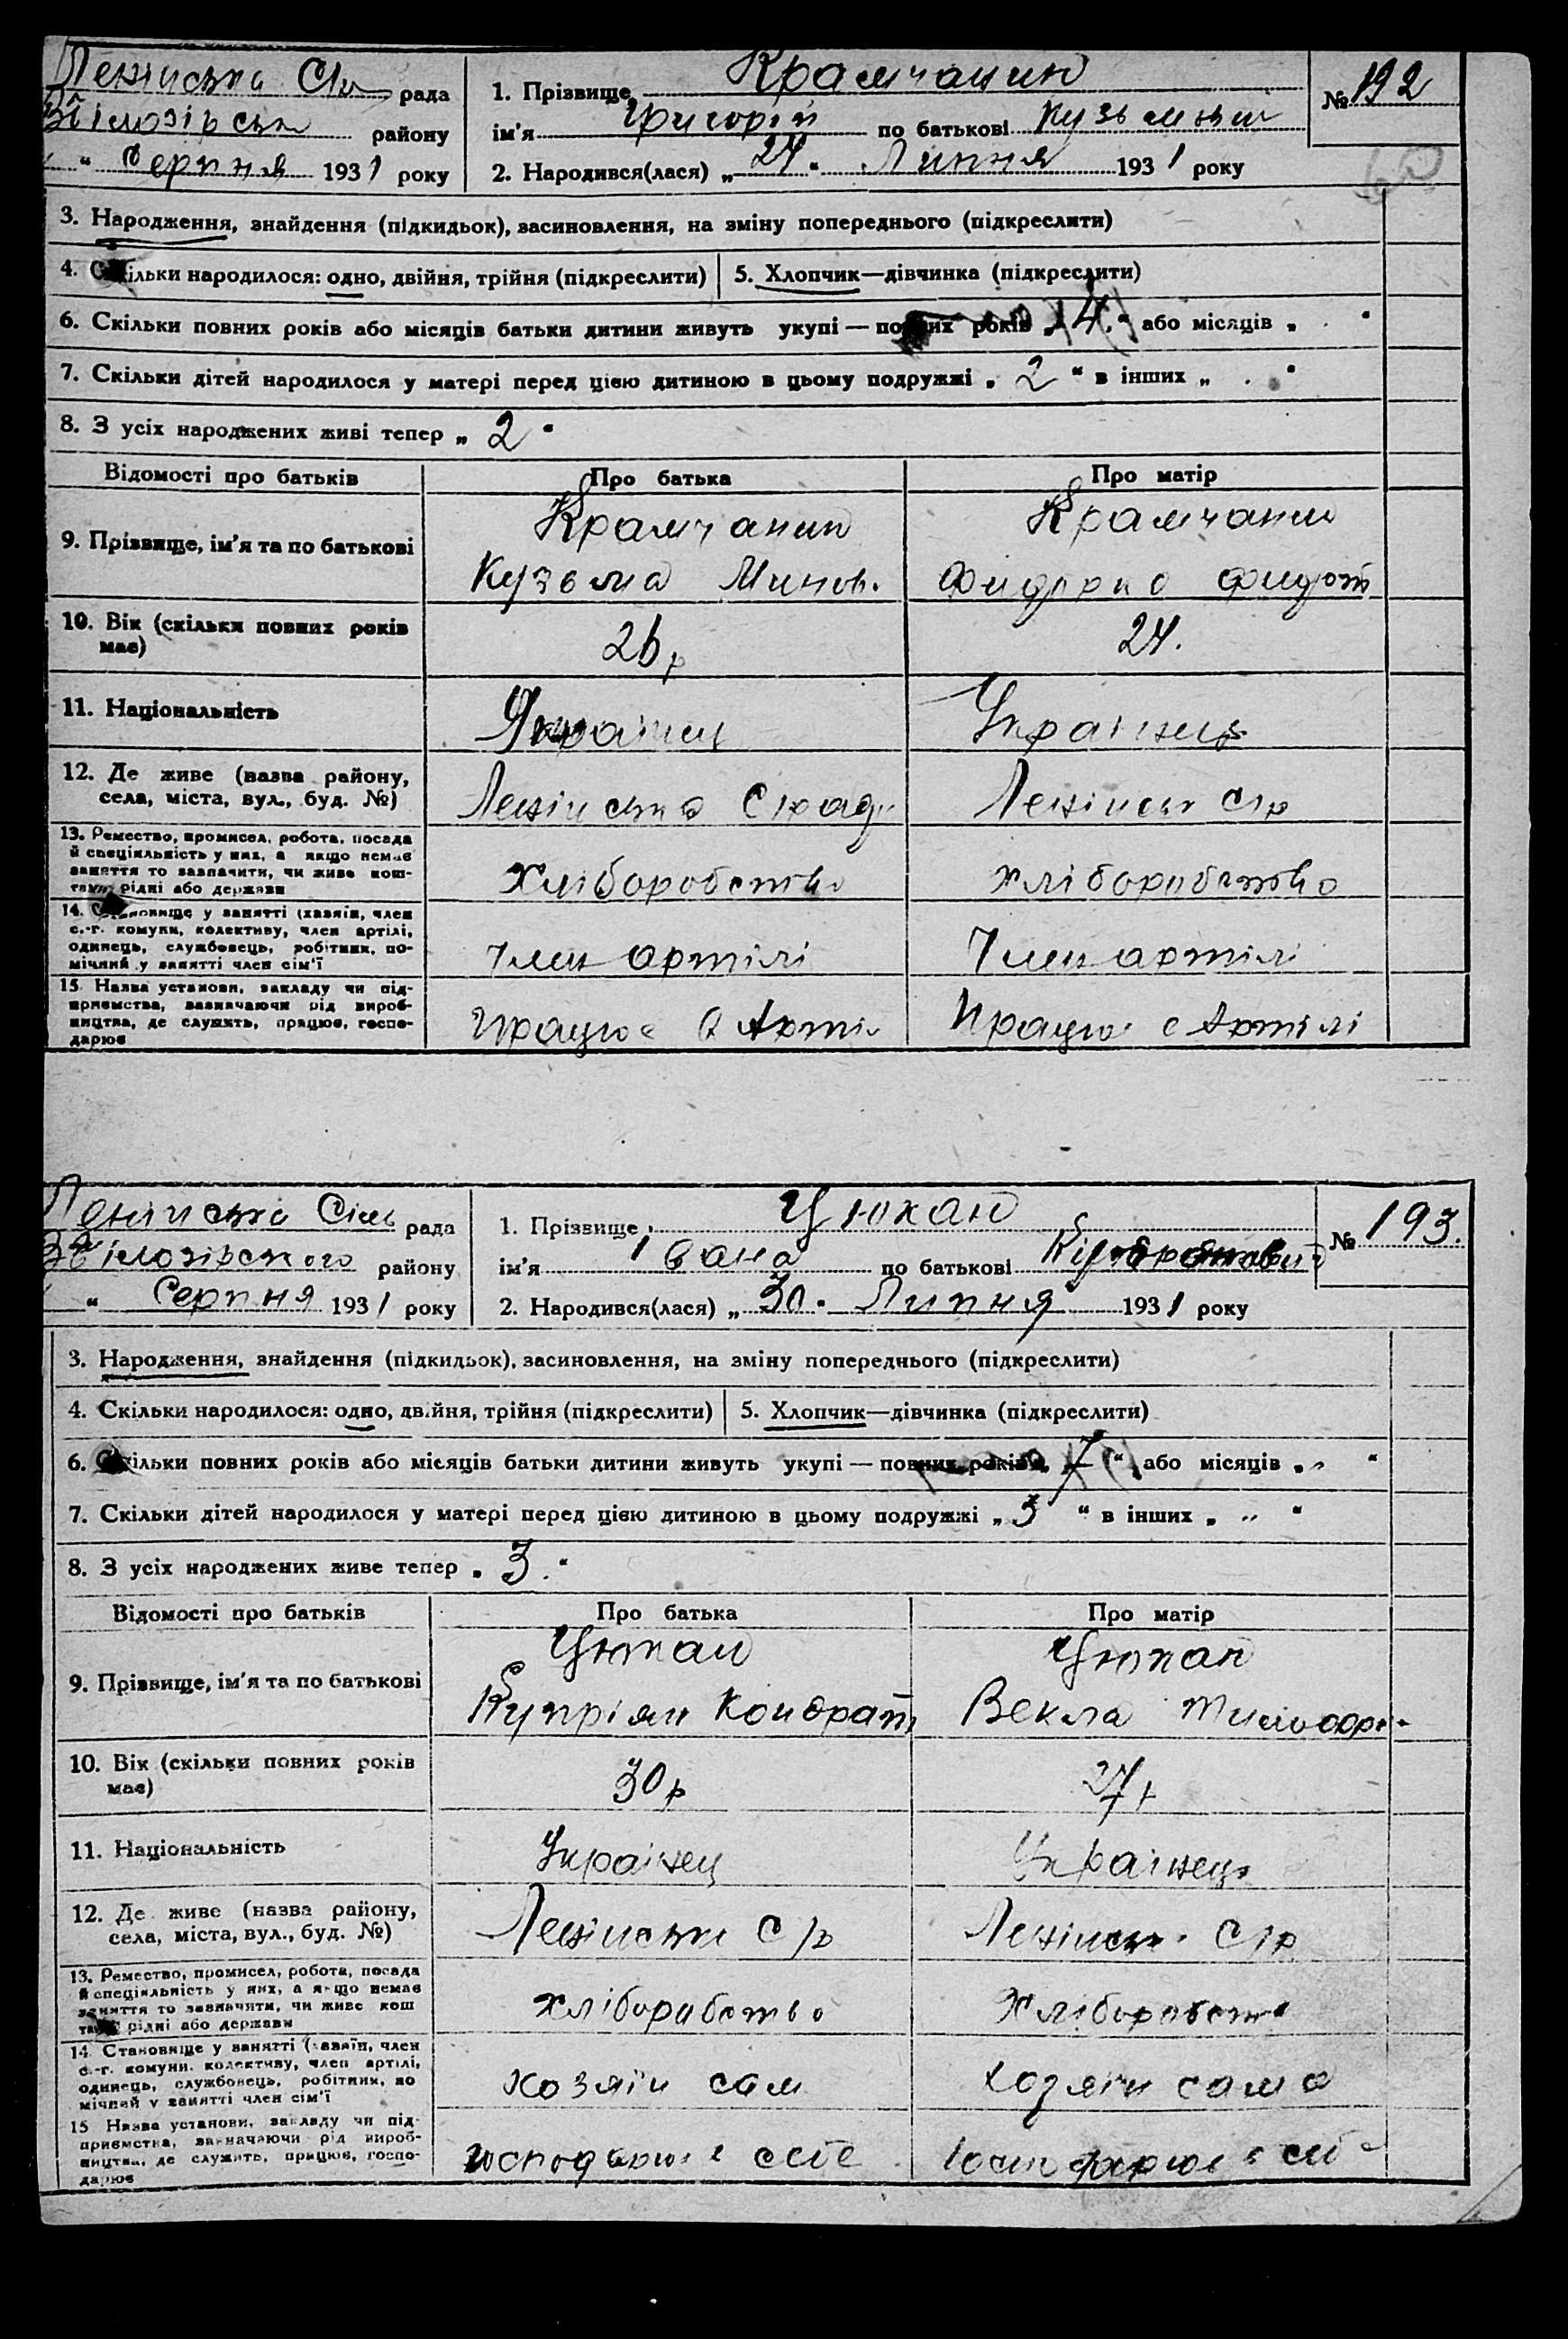 Ленінська С/р рада
Білозірська району
" Серпня 1931 року
1. Прізвище Крамчанин
ім'я Григорій по батькові Кузьмович
2. Народився(лася) „24" Липня 1931 року
№ 192
3. Народження, знайдення (підкидьок), засиновлення, на зміну попереднього (підкреслити)
4. Скільки народилося: одно, двійня, трійня (підкреслити) 5. Хлопчик—дівчинка (підкреслити)
6. Скільки повних років або місяців батьки дитини живуть укупі — повних років „4" або місяців „ "
7. Скільки дітей народилося у матері перед цією дитиною в цьому подружжі „2" в інших „ "
8. З усіх народжених живі тепер „2"
Відомості про батьків Про батька Про матір
9. Прізвище, ім'я та по батькові
Крамчанин
Кузьма Минов.
Крамчанин
10. Вік (скільки повних років має)
26 р
24.
11. Національність
Українец
Українець
12. Де живе (назва району,
села, міста, вул., буд. №)
Ленінська С рада
Ленінськ С/р
13. Ремество, промисел, робота, посада
й спеціяльність у них, а якщо немає
заняття то зазначити, чи живе кош-
тами рідні або держави
Хліборобство
Хліборобство
14. Становище у занятті (хазяїн, член
с.-г. комуни, колективу, член артілі,
одинець, службовець, робітник, по-
мічний у занятті член сім'ї
Член артілі
Член артілі
15. Назва установи, закладу чи під-
приємства, зазначаючи рід вироб-
ництва, де служить, працює, госпо-
дарює
Працює в Артіл
Працює в Артілі
Ленінська Сіль рада
Білозірского району
" Серпня 1931 року
1. Прізвище Цюкан
ім'я Івана по батькові
2. Народився(лася) „30" Липня 1931 року
№ 193.
3. Народження, знайдення (підкидьок), засиновлення, на зміну попереднього (підкреслити)
4. Скільки народилося: одно, двійня, трійня (підкреслити) 5. Хлопчик—дівчинка (підкреслити)
6. Скільки повних років або місяців батьки дитини живуть укупі — повних років „7" або місяців „ "
7. Скільки дітей народилося у матері перед цією дитиною в цьому подружжі „3" в інших „ "
8. З усіх народжених живе тепер „3"
Відомості про батьків Про батька Про матір
9. Прізвище, ім'я та по батькові
Цюкан
Купріян Кондрат
Цюкан
Векла
10. Вік (скільки повних років
має)
30 р
27 р
11. Національність
Українец
Українець
12. Де живе (назва району,
села, міста, вул., буд. №)
Ленінська С/р
Ленінськ. С/р
13. Ремество, промисел, робота, посада
й спеціяльність у них, а якщо немає
заняття то зазначити, чи живе кош
тами рідні або держави
Хліборобство
Хліборобств
14. Становище у занятті (хазяїн, член
с.-г. комуни, колективу, член артілі,
одинець, службовець, робітник, по
мічний у занятті член сім'ї
хозяїн сам
хозяїн сама
15 Назва установи, закладу чи під-
приємства, зазначаючи рід вироб-
ництва, де служить, працює, госпо-
дарює
господарює в себе
господарює в себ